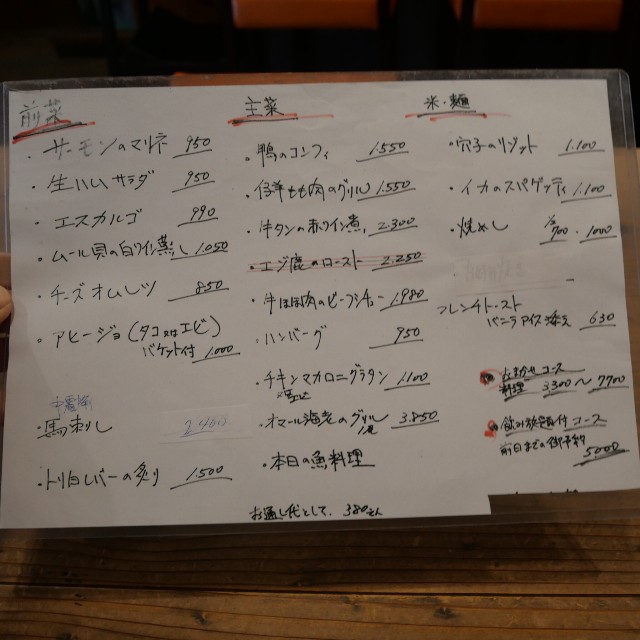 前菜
・サーモンのマリネ 950
・生ハムサラダ 950
・エスカルゴ 990
・ムール貝の白ワイン蒸し 1.050
・チーズオムレツ 850
・アヒージョ(タコ又はエビ)
バケット付 1.000
・馬刺し 2.400
・トリ白レバーの炙り 1.500
主菜
・鴨のコンフィ 1.550
・仔羊もも肉のグリル 1.550
・牛タンの赤ワイン煮 2.300
・エゾ鹿のロースト 2.250
・牛ほほ肉のビーフシチュー 1.980
・ハンバーグ 950
・チキンマカロニグラタン 1.100
・オマール海老のグリル 3.850
・本日の魚料理
お通し代として、380えん
米・麺
・穴子のリゾット 1.100
・イカのスパゲッティ 1.100
・焼めし 700・1000
フレンチトースト
バニラアイス添え 630
おまかせコース
料理 3300〜7700
飲み放題付コース
前日までの御予約
5000